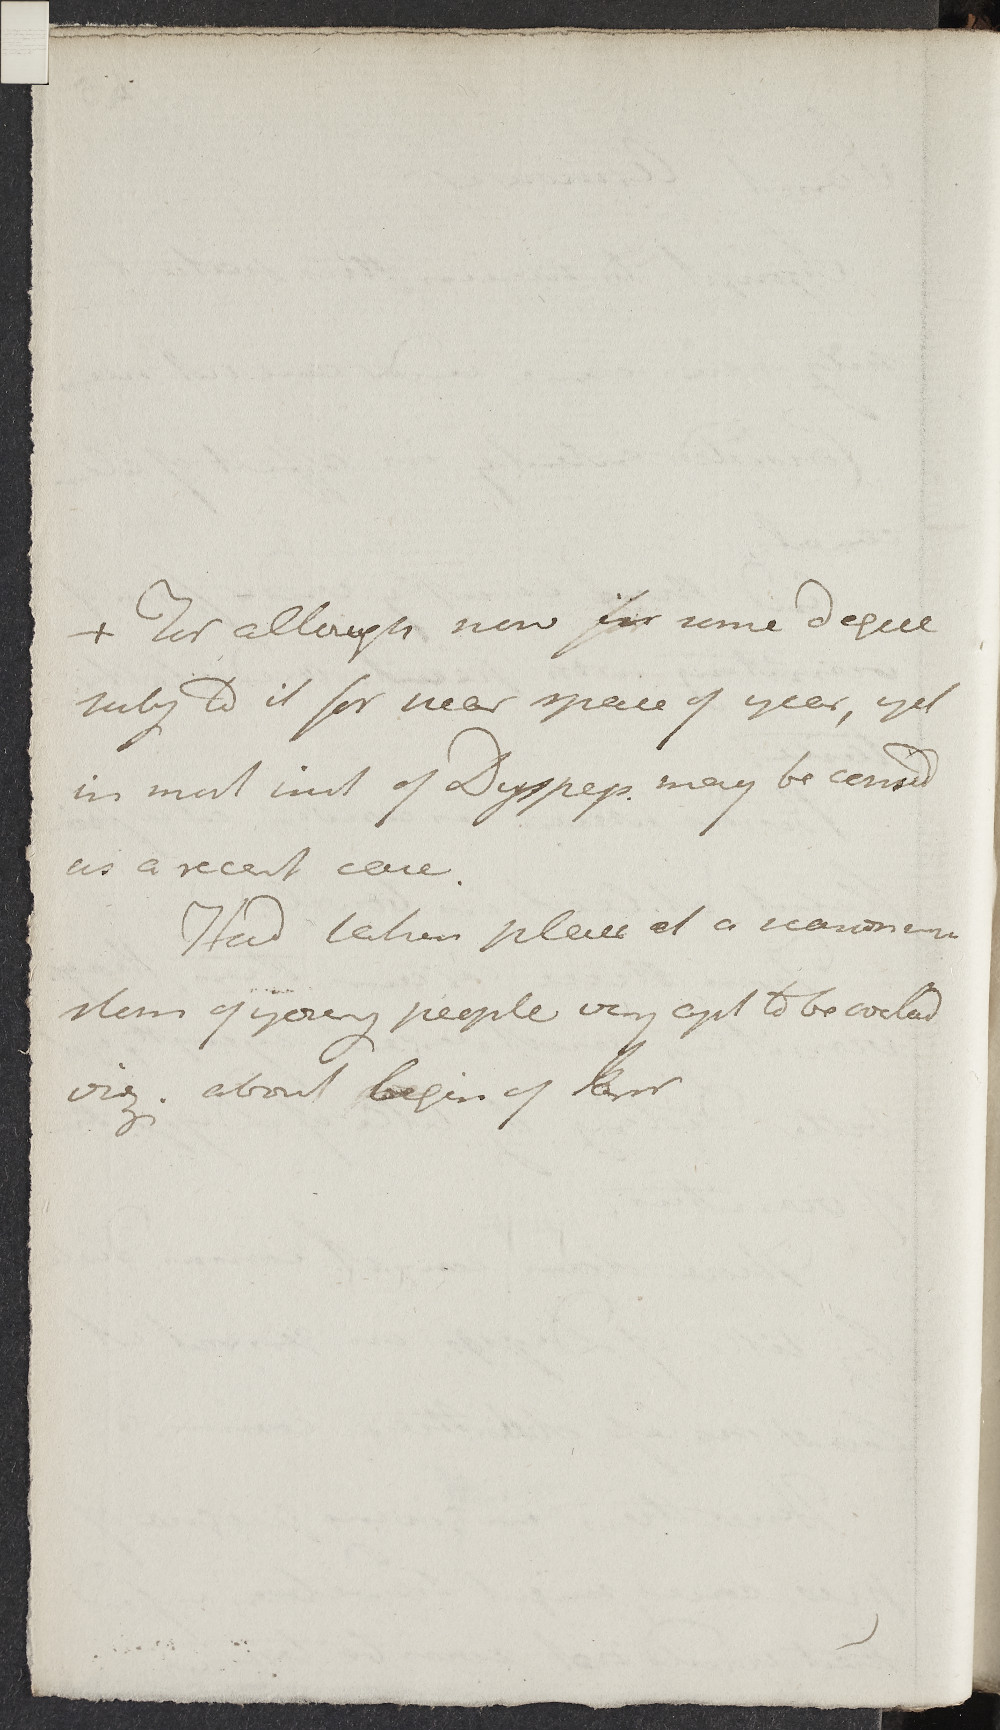 + For although now in some degree
subj to it for near space of year, yet
in most inst of Dyspep. may be consid
as a recent case.
Had taken place at a season
of young people very apt to be
viz. about begin of